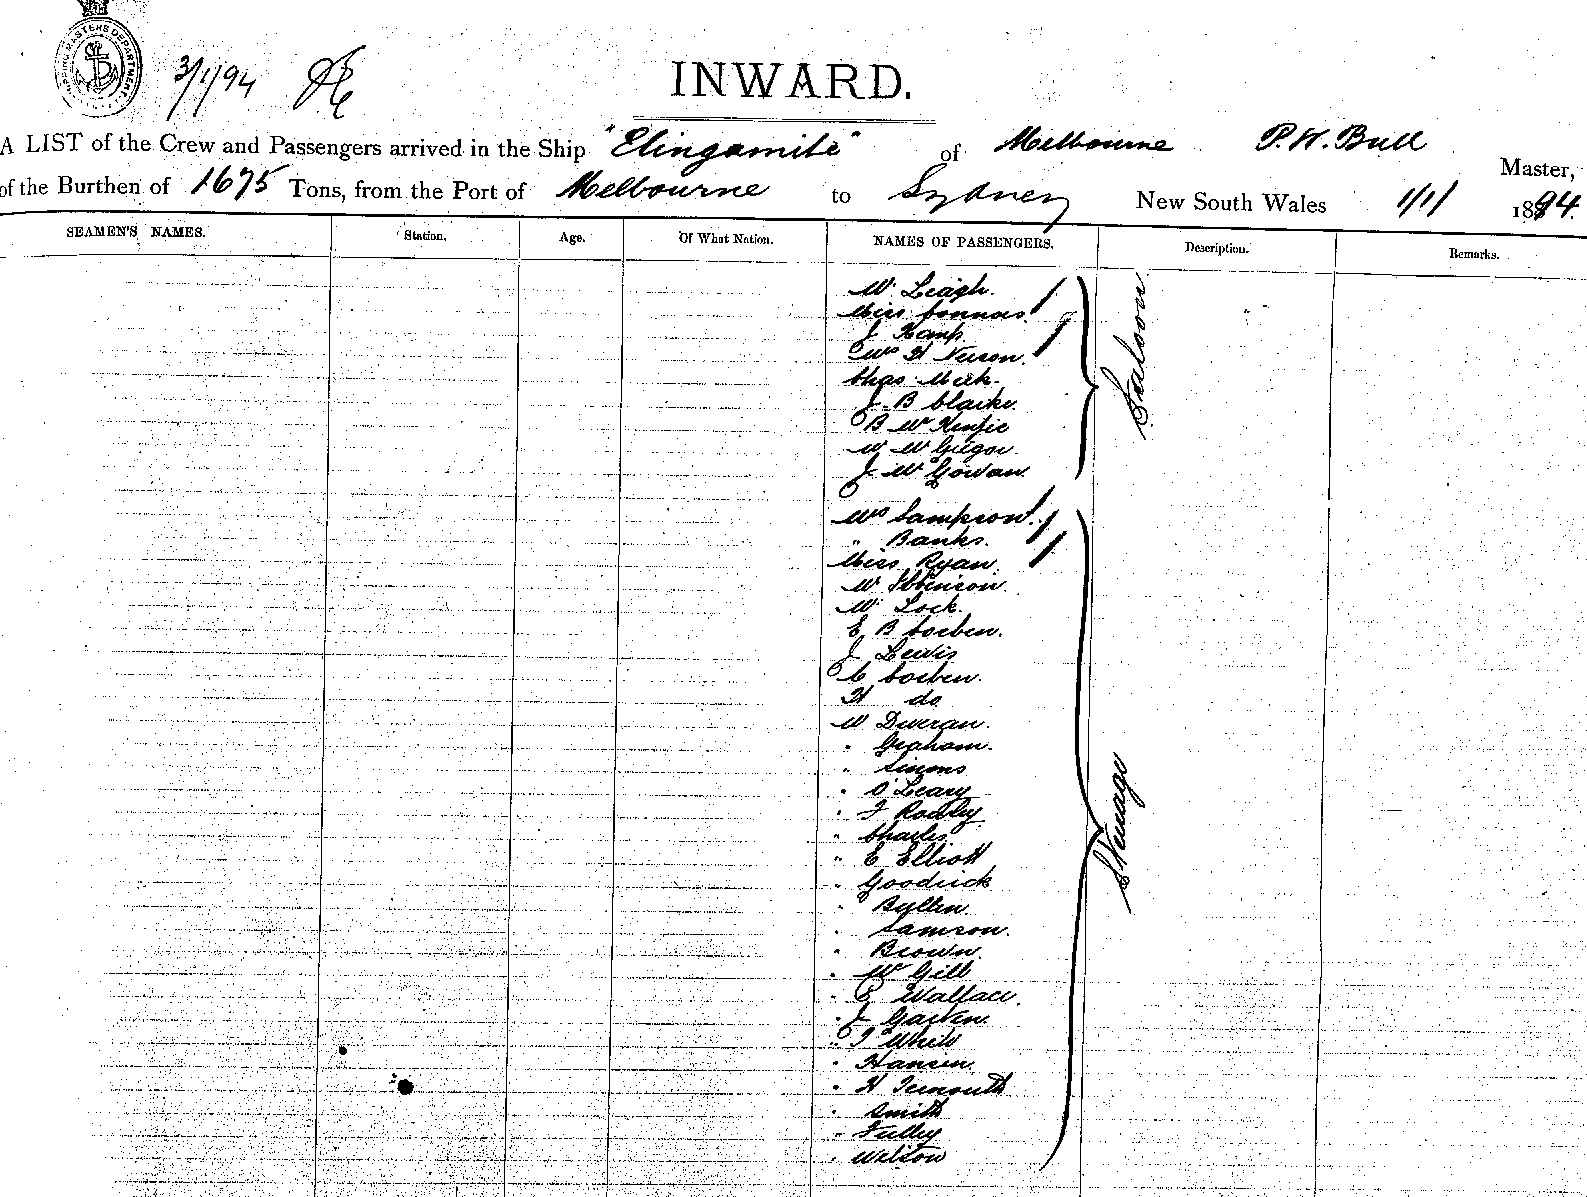 SHIPPING MASTERS DEPARTMENT
3/1/94
INWARD.
A LIST of the Crew and Passengers arrived in the Ship "Elingamite" of Melbourne P. W. Bull Master,
of the Burthen of 1675 Tons, from the Port of Melbourne to Sydney New South Wales 1/1/ 1894.
SEAMEN'S NAMES. Station. Age. Of What Nation. NAMES OF PASSENGERS. Description. Remarks.
W Leigh.
Miss Connors
J Kamp
Mrs H
Chas Meek.
J B Clarke.
B McKenzie
W McGregor
J McGowan
Saloon
Mrs Sampson
" Banks.
Miss Ryan.
W Robinson
W Lock.
E B
J Lewis
C
H do
W
" Graham.
" Simons
" O'Leary
" F
" Charles
" E Elliott
" Goodrick
"
" Samson.
" Brown.
" McGill
" E Wallace.
" J
" T White
" Hansen.
" H
" Smith
" Tulley
" Wilson
Steerage